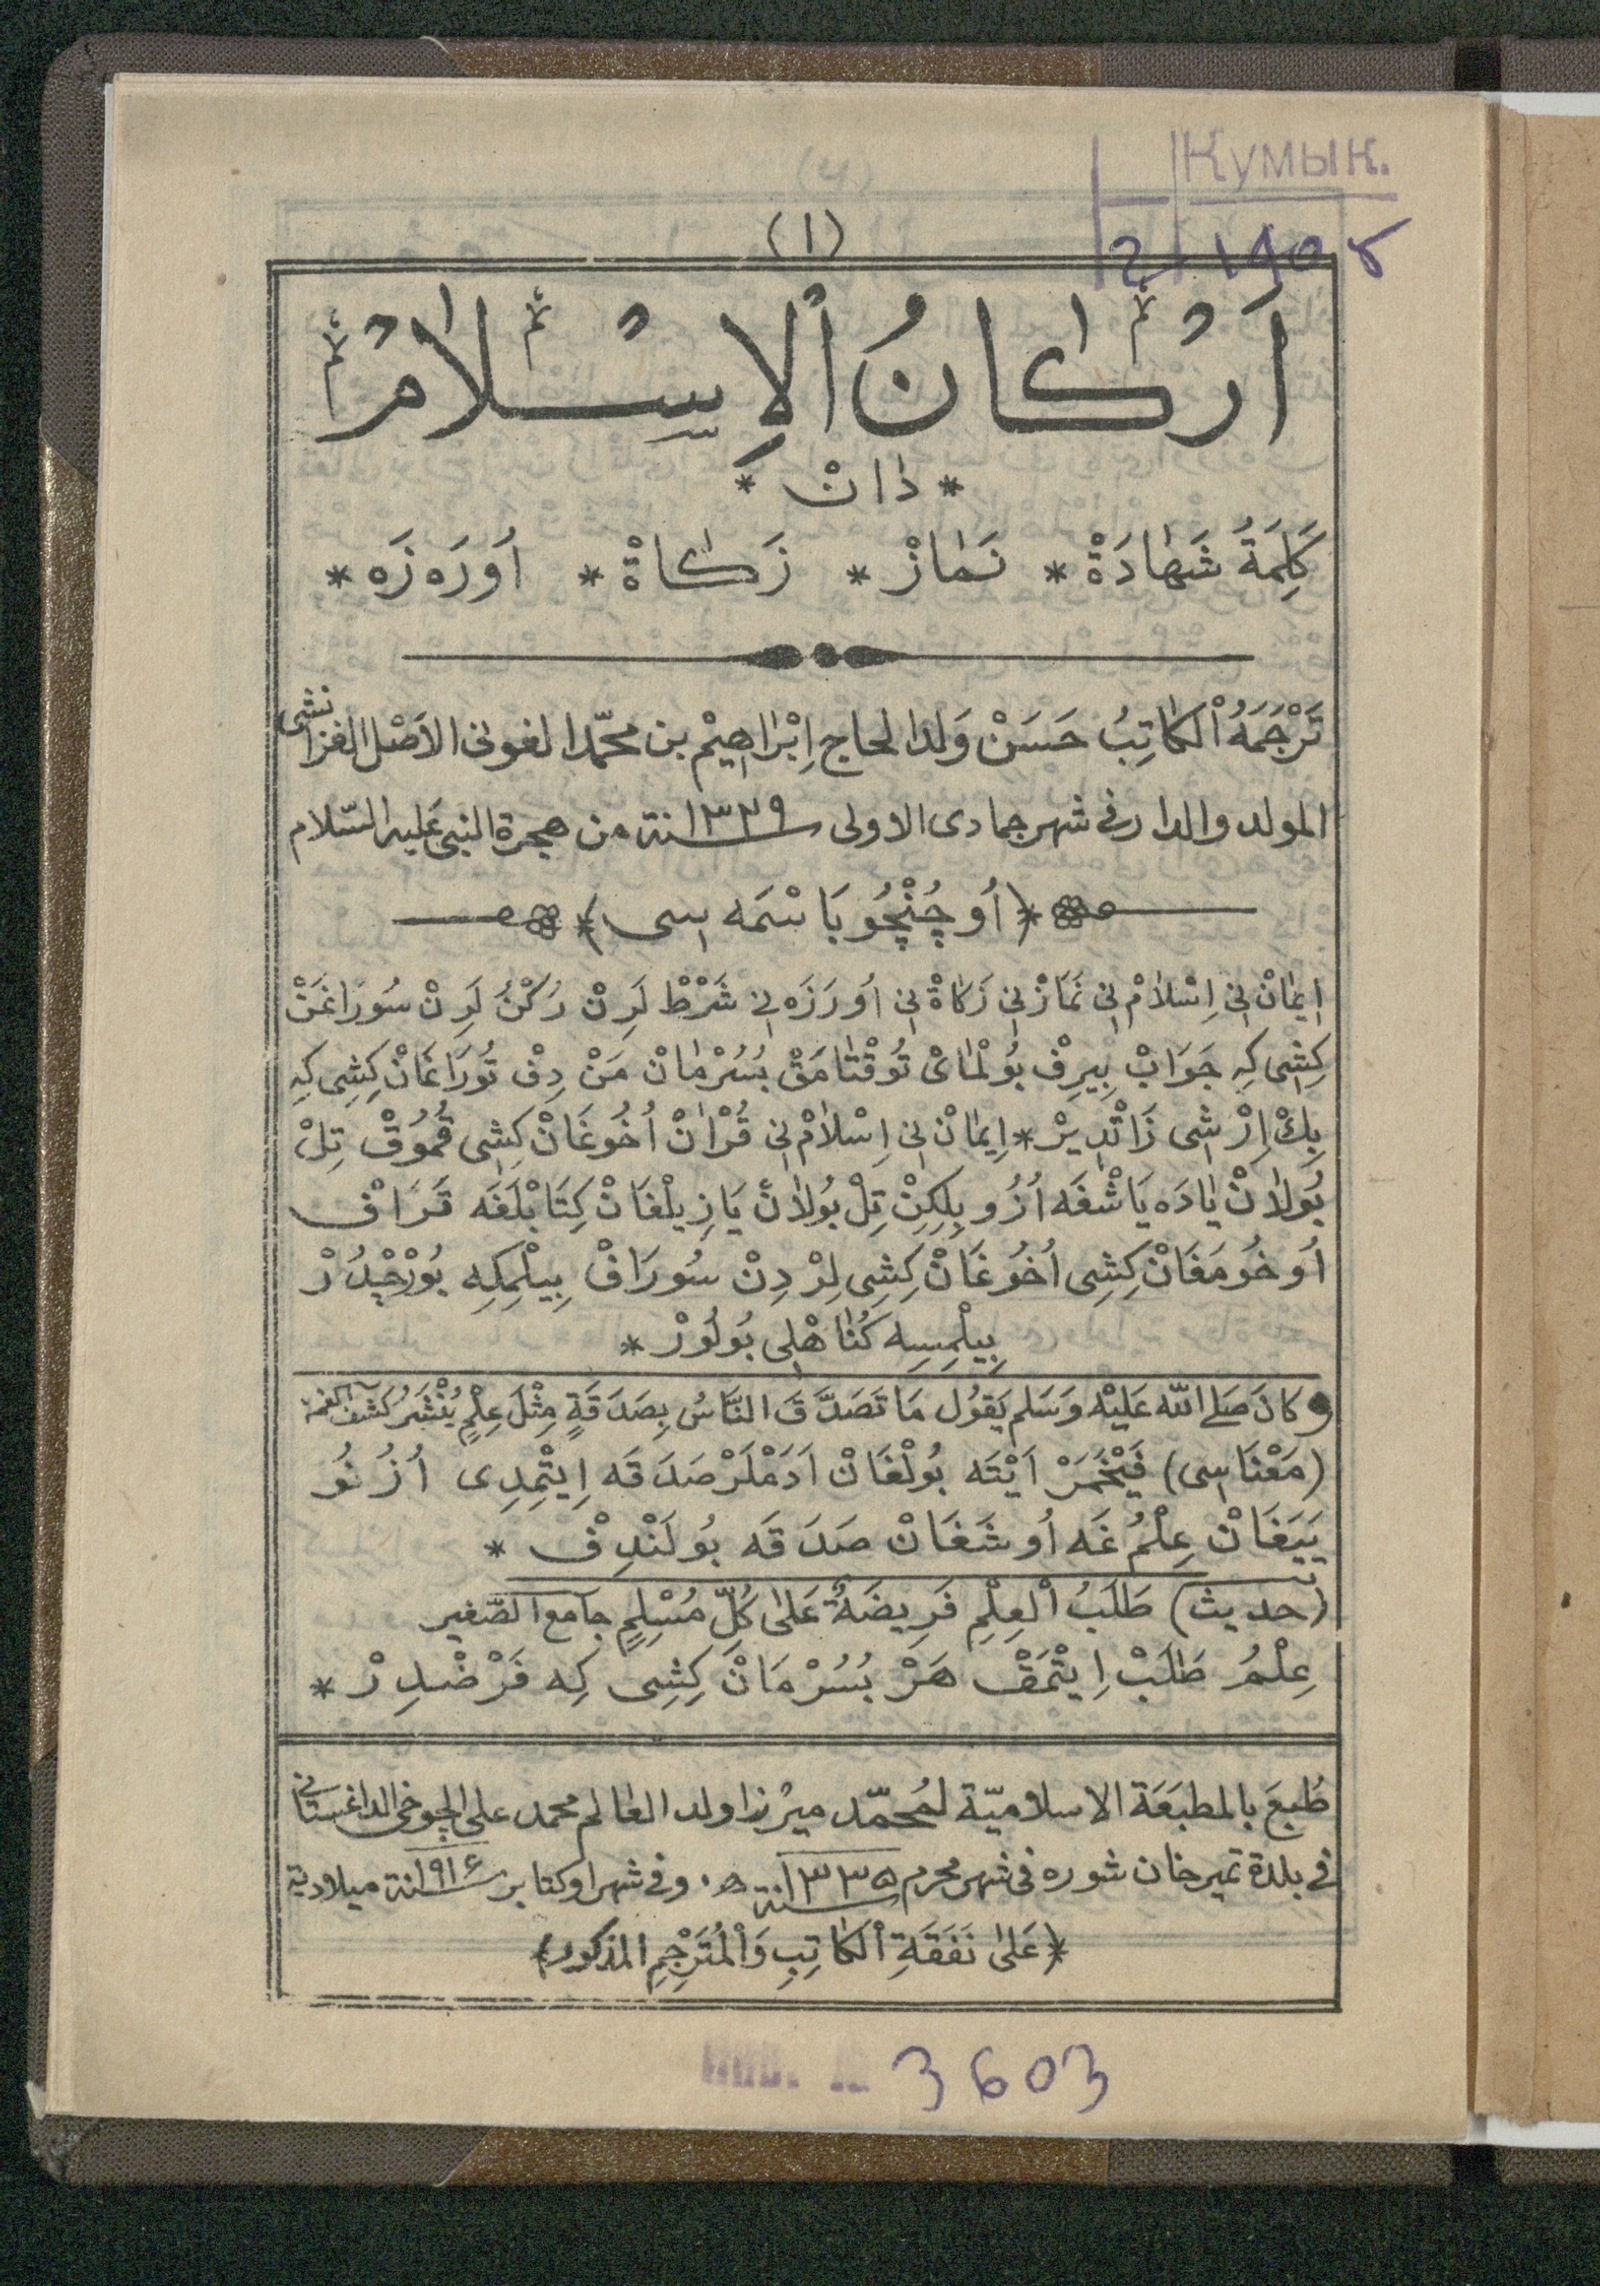 Кумык.
2 1908
(١)
اَرْكَانُ اْلاِسْلَامْ
* دٰاتْ *
كَلِمَةُ شَهٰادَةْ * نَمٰازْ * زَكٰاةْ * اُورَه زَه *
تَرْجَمَهُ اْلكٰاتِبُ حَسَنْ وَلد الحاج اِبْرٰاهِيْمْ بن محمّد الغونى الاَصْل الغزانشى
المولد والدار فى شهر جمادى الاولى سنة ١٣٢٩ من هجرة النبى عَليه السّلام
*( اُوچُنْچُو بَاسْمَه سى )*
اِيمٰانْ نِى اِسْلٰامْ نِى نَمَازْ نِى زَكٰاةْ نِى اُورَزَه نِى شَرْطْ لَرِنْ رُكْنُ لَرِنْ سُورَاغَنْ
كِشِى كِه جَوَابْ بِيرِفْ بُولْمٰاىْ تُوقْتٰامَقْ بُسُرْمٰانْ مَنْ دِفْ تُورَاغَانْ كِشِى كِه
بِكْ اِرْشِى زَاتْدِيرْ * اِيمٰانْ نِى اِسْلٰامْ نِى قُرْاٰنْ اُخُوغَانْ كِشِى قُمُوقْ تِلْ
بُولٰانْ يٰادَه يَاشْغَه اُزُو بِلِكِنْ تِلْ بُولٰانْ يَازِيلْغَانْ كِتَابْلَغَه قَرَافْ
اُوخُومَغَانْ كِشِى اُخُوغَانْ كِشِى لِرْدِنْ سُورَافْ بِيلْمِكِه بُورْچْدُرْ
بِيلْمِسِه كُنٰاهْلِى بُولُورْ *
وكَانَ صَلى اللّه عَلَيْه وَسَلم يَقوُل مَا تَصَدَّقَ النَّاسُ بِصَدَقَةٍ مِثْلَ عِلْمٍ يُنْشَرُ كَشف الغمة
(مَعْنَاسِى) فَيْغَمَرْ اَيْتَه بُولْغَانْ اَدَمْلَرْ صَدَقَه اِيتْمِدِى اُزُنُو
يَيَغَانْ عِلْمُغَه اُوشَغَانْ صَدَقَه بُولَنْدِفْ *
(حديث) طَلَبُ اْلعِلْمِ فَرِيضَةٌ عَلىٰ كُلِّ مُسْلِمٍ جامع الصَّغير
عِلْمُ طَلَبْ اِيتْمَقْ هَرْ بُسُرْمَانْ كِشِى كِه فَرْضْدِرْ *
طُبعَ بالمطبَعَة الاسلاميّة لمُحمّد ميرْزا ولد العالم محمد على الچوخى الداغستانى
فى بلدة تميرخان شوره فى شهر محرم سنة ١٣٣٥ ه. وفى شهر اوكتابر سنة ١٩١٦ ميلادية
*(عَلىٰ نَفَقَةِ اْلكٰاتِبِ وَاْلمُتَرْجِمِ المذكور)*
3603